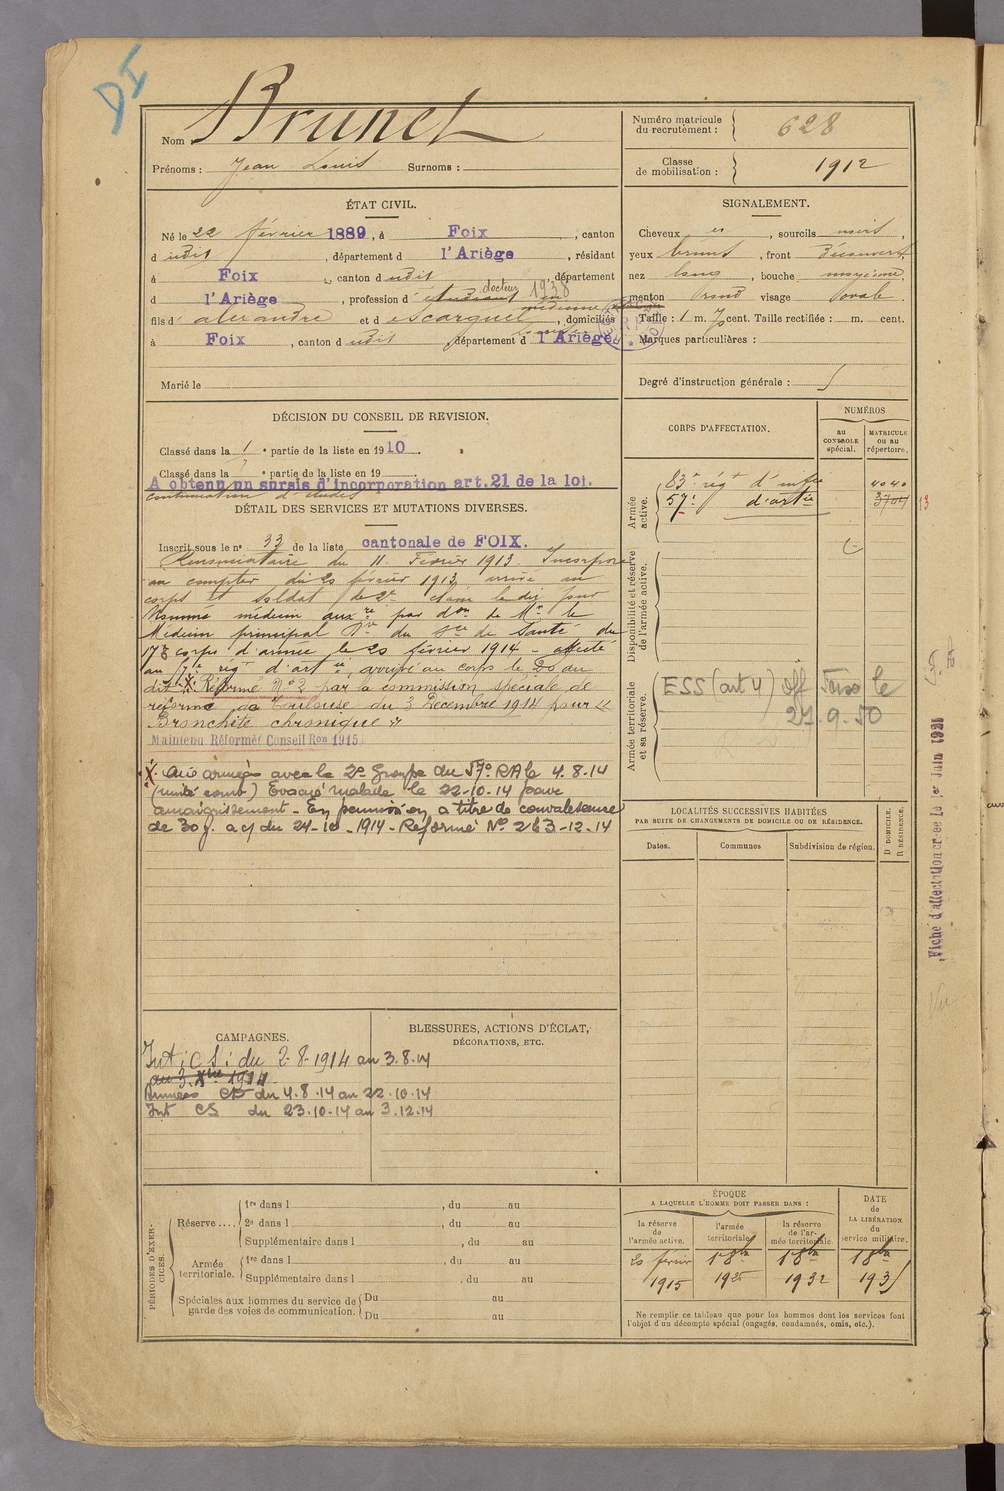 DI
Nom Brunet
Prénoms : Jean Louis Surnoms :
Numéro matricule du recrutement : 628
Classe de mobilisation : 1912
ÉTAT CIVIL.
Né le 22 février 1889, à Foix, canton
d udit, département d l'Ariège, résidant
à Foix, canton d udit, département
d l'Ariège, profession d' étudiant en docteur 1938
médecine
fils d' alexandre et d escarguel, domiciliés
à Foix, canton d udit, département d l'Ariège
Marié le
SIGNALEMENT.
Cheveux et, sourcils noirs,
yeux bruns, front découvert,
nez long, bouche moyenne,
menton rond visage ovale
Taille : 1 m. 7 cent. Taille rectifiée : m. cent.
Marques particulières :
Degré d'instruction générale : 5
DÉCISION DU CONSEIL DE REVISION.
Classé dans la 1 e partie de la liste en 1910.
Classé dans la 7 e partie de la liste en 19
A obtenu un sursis d'incorporation art. 21 de la loi.
continuation d'études
DÉTAIL DES SERVICES ET MUTATIONS DIVERSES.
Inscrit sous le no 33 de la liste cantonale de FOIX.
Renonciataire du 11 Février 1913 Incorporé
au compter du 20 février 1913 arrivé au
corps et soldat de 2e classe le dit jour
Nommé médecin auxre par don de Mr le
Médecin principal Dr du Sce de Santé du
17e corps d'armée le 20 février 1914 - affecté
au 57e régt d'artie, arrivé au corps le 20 du
dit X. Réformé No 2 par la commission spéciale de
réforme de Toulouse du 3 Décembre 1914 pour "
Bronchite chronique "
Maintenu Réformé Conseil Ron 1915
X. Aux armées avec le 2e Groupe du 57e RA le 4.8.14
(unité comb) Evacué malade le 22-10-14 pour
amaigrissement - En permission a titre de convalescence
de 30 j. a c/ du 24-10-1914 - Réformé No 2 le 3-12-14
CORPS D'AFFECTATION.
NUMÉROS
au CONTROLE spécial.
MATRICULE ou au répertoire.
Armée active.
83e régt d'infie 4040
57e d'artie 3704 13
Disponibilité et réserve de l'armée active.
Armée territoriale et sa réserve.
ESS (art 4) Aff le
27.9.50
LOCALITÉS SUCCESSIVES HABITÉES
PAR SUITE DE CHANGEMENTS DE DOMICILE OU DE RÉSIDENCE.
Dates. Communes Subdivision de région. D DOMICILE. R RÉSIDENCE.
Fiche d'affectation créée le 1er Juin 1921
CAMPAGNES.
Int : C S : du 2-8-1914 au 3.8.14
au 3 Xbre 1914
Armées CD du 4.8.14 au 22.10.14
Int CS du 23.10.14 au 3.12.14
BLESSURES, ACTIONS D'ÉCLAT,
DÉCORATIONS, ETC.
PÉRIODES D'EXERCICES.
Réserve....
1re dans l , du au
2e dans l , du au
Supplémentaire dans l , du au
Armée territoriale.
1re dans l , du au
Supplémentaire dans l , du au
Spéciales aux hommes du service de garde des voies de communication.
Du au
Du au
ÉPOQUE
A LAQUELLE L'HOMME DOIT PASSER DANS :
la réserve de l'armée active.
l'armée territoriale.
la réserve de l'armée territoriale.
DATE DE LA LIBÉRATION du service militaire.
20 février 1915
18bre
18bre 1932
18bre 1935
Ne remplir ce tableau que pour les hommes dont les services font
l'objet d'un décompte spécial (engagés, condamnés, omis, etc.).